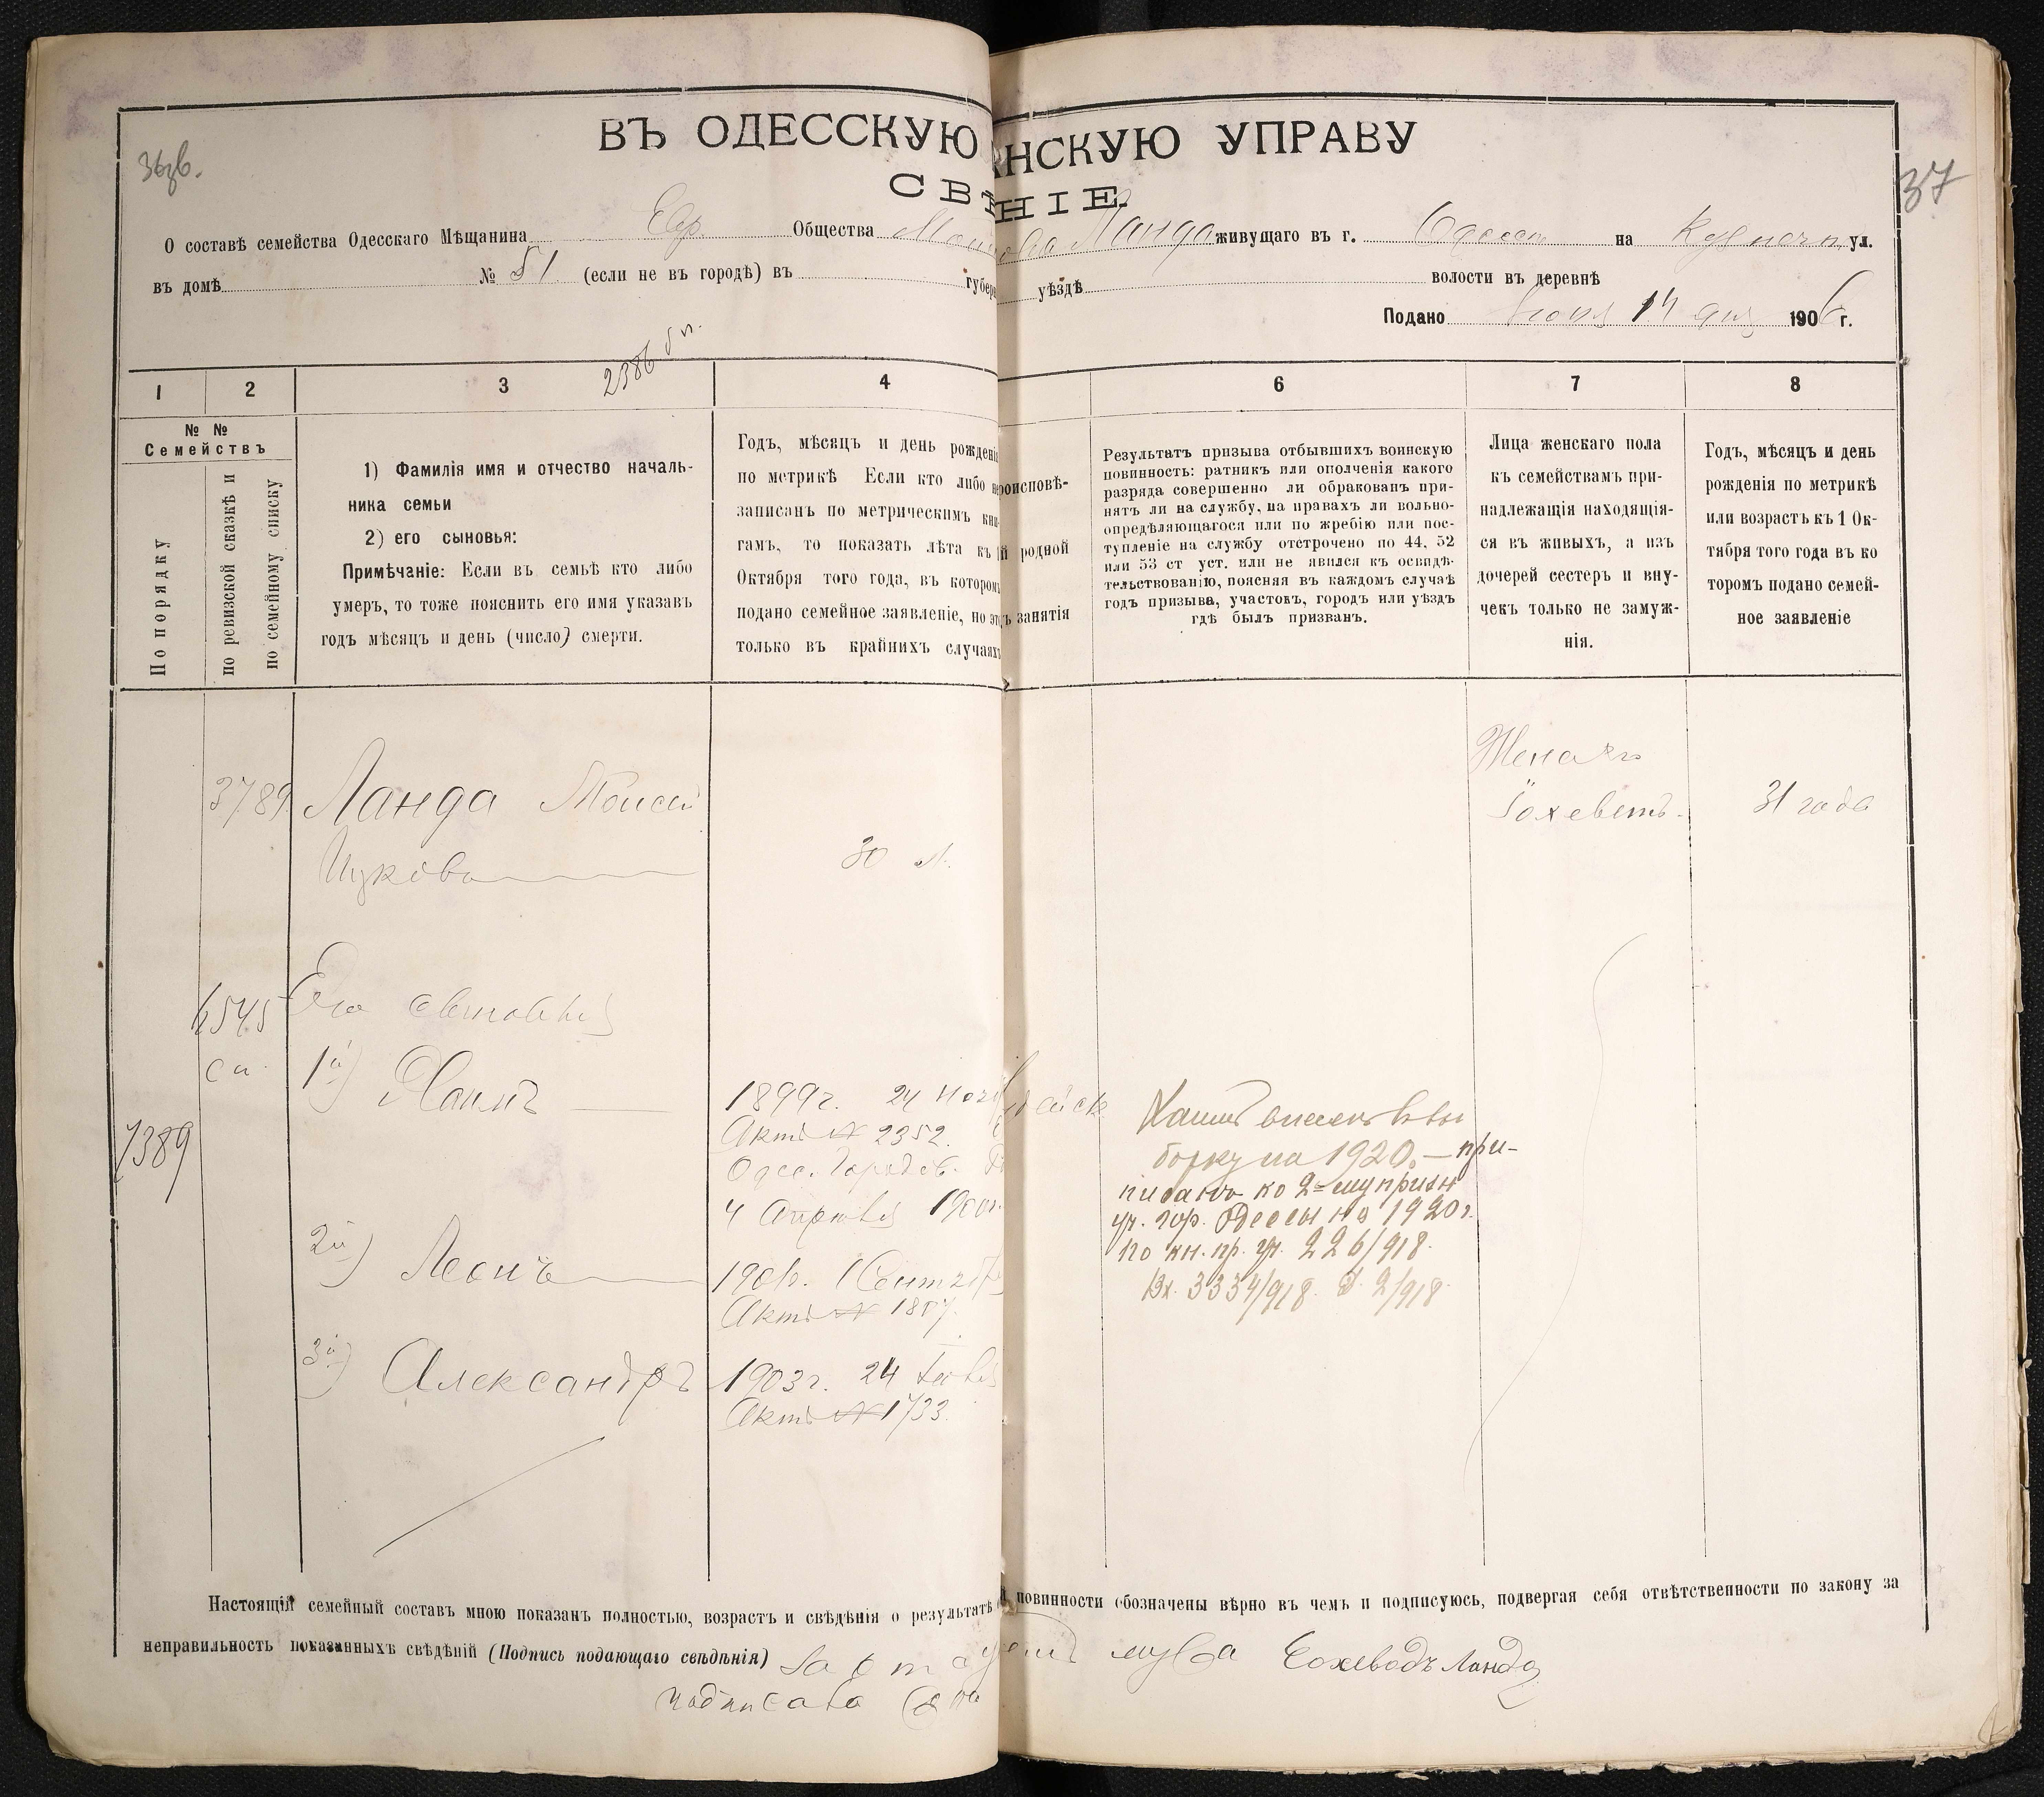 ВЪ ОДЕССКУЮ АНСКУЮ УПРАВУ
СВѢ НІЕ
37
О составѣ семейства Одесскаго Мѣщанина Евр. Общества Ланда живущаго въ г. Одессѣ на ул.
въ домѣ № 51 (если не въ городѣ) въ губерн уѣздѣ волости въ деревнѣ
Подано 14 дня 1906 г.
2386
1 2 3 4 6 7 8
№ №
Семействъ
По порядку
по ревизской сказкѣ и
по семейному списку
1) Фамилія имя и отчество началь-
ника семьи
2) его сыновья:
Примѣчаніе: Если въ семьѣ кто либо
умеръ, то тоже пояснить его имя указавъ
годъ мѣсяцъ и день (число) смерти.
Годъ, мѣсяцъ и день рожденія
по метрикѣ Если кто либо не
записанъ по метрическимъ кни-
гамъ, то показать лѣта къ 1
Октября того года, въ которомъ
подано семейное заявленіе, но это
только въ крайнихъ случаяхъ
роисповѣ-
й родной
ъ занятія
Результатъ призыва отбывшихъ воинскую
повинность: ратникъ или ополченія какого
разряда совершенно ли обракованъ при-
нятъ ли на службу, на правахъ ли вольно-
опредѣляющагося или по жребію или пос-
тупленіе на службу отсрочено по 44, 52
или 53 ст уст. или не явился къ освидѣ-
тельствованію, поясняя въ каждомъ случаѣ
годъ призыва, участокъ, городъ или уѣздъ
гдѣ былъ призванъ.
Лица женскаго пола
къ семействамъ при-
надлежащія находящія-
ся въ живыхъ, а изъ
дочерей сестеръ и вну-
чекъ только не замуж-
нія.
Годъ, мѣсяцъ и день
рожденія по метрикѣ
или возрастъ къ 1 Ок-
тября того года въ ко
торомъ подано семей-
ное заявленіе
Жена его
Іохеветъ. 31 года
3789 Ланда Мойсей
Ицковъ 30 л.
6545 Его сыновья
сп. 1й) Хаимъ 1899г. 24 Нояб
Актъ № 2352.
7389 Одес. Городов.
4 1900г.
Хаимъ внесенъ въ вы
борку на 1920. — при-
писанъ ко 2-му призн
уч. гор. Одессы на 1920г.
по кн. пр. уч. 226/918.
Вх. 3334/918. д. 2/918.
2й) Леонъ 190 г. 1 Сентября
Актъ № 1857.
3й) Александръ 1903г. 24
Актъ № 1733.
Настоящій семейный составъ мною показанъ полностью, возрастъ и свѣдѣнія о результатѣ й повинности обозначены вѣрно въ чемъ и подписуюсь, подвергая себя отвѣтственности по закону за
неправильность показанныхъ свѣдѣній (Подпись подающаго свѣдѣнія) За мужа Ланда
подписала